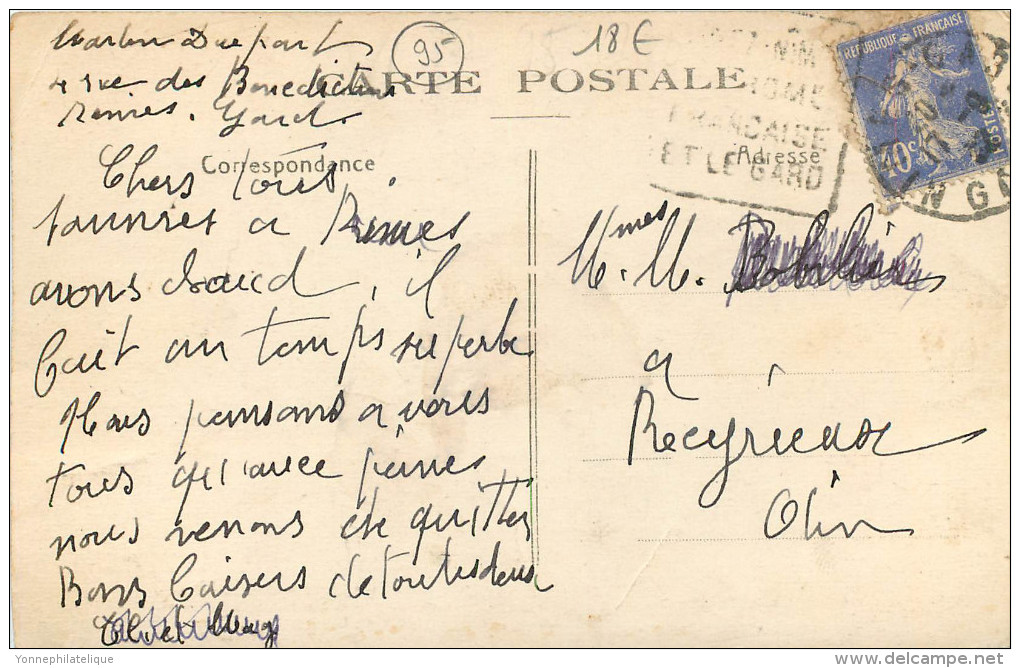 Marben Dupart
4 rue des Benedictins
Nimes. Gard.
95
18 €
CARTE POSTALE
Correspondance
Adresse
ROME
FRANCAISE
ET LE GARD
REPUBLIQUE FRANÇAISE
40c
POSTES
Chers tous
à Nimes
avons chaud, il
fait un temps superbe
Nous pensons a vous
tous qu'avec peine
nous venons de quitter
Bons baisers de toutes deux
et
Mmes
M. M.
a
Peeyrieux
Ain
Yonnephilatelique